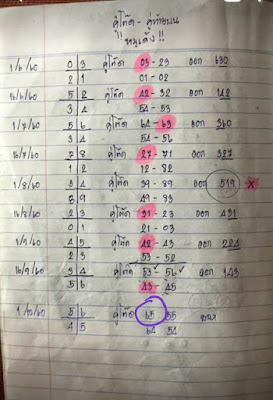 คู่โต๊ด - คู่ท้ายบน
!! หมูเด้ง !!
1/6/60 0 3 คู่โต๊ด 03 - 23 ออก 630
2 1 01 - 02
16/6/60 5 2 คู่โต๊ด 42 - 32 ออก 142
3 4 54 - 53
1/7/60 5 6 คู่โต๊ด 64 - 63 ออก 360
3 4 54 - 56
16/7/60 7 8 คู่โต๊ด 27 - 71 ออก 327
1 2 12 - 82
1/8/60 3 4 คู่โต๊ด 39 - 89 ออก 519 ×
8 9 49 - 93
16/8/60 2 3 คู่โต๊ด 31 - 23 ออก 431
0 1 21 - 03
1/9/60 4 5 คู่โต๊ด 42 - 43 ออก 224
2 3 53 - 52
16/9/60 3 4 คู่โต๊ด 53 56 ออก 143
5 6 43 - 45
1/10/60 5 6 คู่โต๊ด 65 55
4 5 64 54